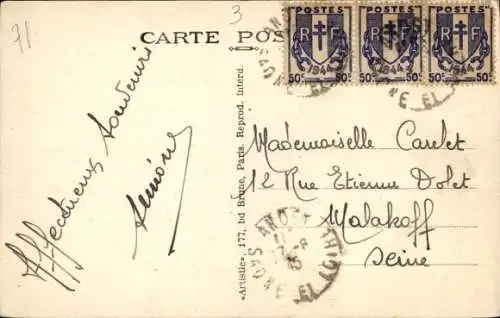 71
3
CARTE POS
POSTES
RF
1944
50c 50c
POSTES
RF
1944
50c 50c
RF
50c 50c
Affectueux Souvenirs
Simone
«Artistic», 177, bd Brune, Paris. Reprod. interd.
Mademoiselle Carlet
12 Rue Etienne Dolet
Malakoff
Seine
SAONE ET